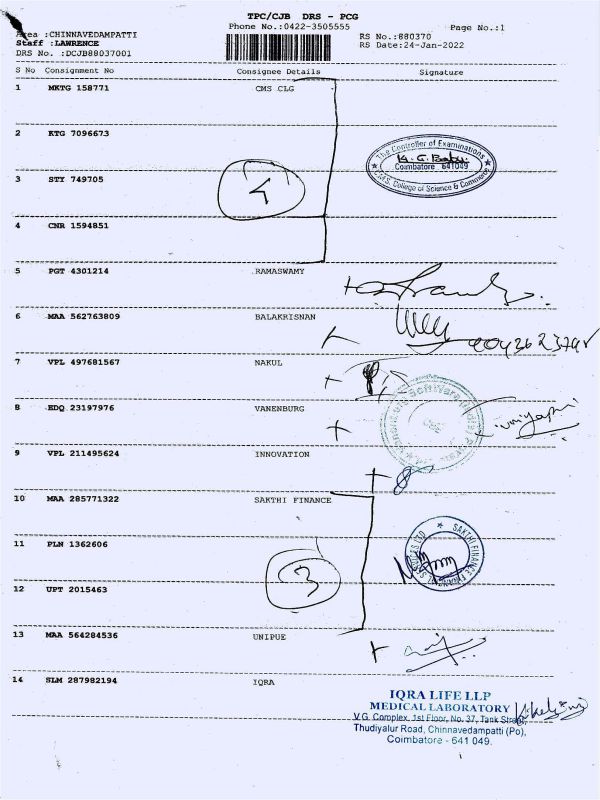 TPC/CJB DRS - PCG
Phone No.:0422-3505555
Page No.:1
Area :CHINNAVEDAMPATTI
RS No.:880370
Staff :LAWRENCE
RS Date:24-Jan-2022
DRS No. :DCJB88037001
S No Consignment No Consignee Details Signature
1 MKTG 158771 CMS CLG
2 KTG 7096673
The Controller of Examinations
Coimbatore 641049
C.M.S. College of Science & Commerce
3 STY 749705
4
4 CNR 1594851
5 PGT 4301214 RAMASWAMY
6 MAA 562763809 BALAKRISNAN
7 VPL 497681567 NAKUL
8 EDQ 23197976 VANENBURG
9 VPL 211495624 INNOVATION
10 MAA 285771322 SAKTHI FINANCE
11 PLN 1362606
SAKTHI FINANCE FINANCIAL SERVICES LTD
3
12 UPT 2015463
13 MAA 564284536 UNIPUE
14 SLM 287982194 IQRA
IQRA LIFE LLP
MEDICAL LABORATORY
V.G. Complex, 1st Floor, No. 37, Tank Street,
Thudiyalur Road, Chinnavedampatti (Po),
Coimbatore - 641 049.